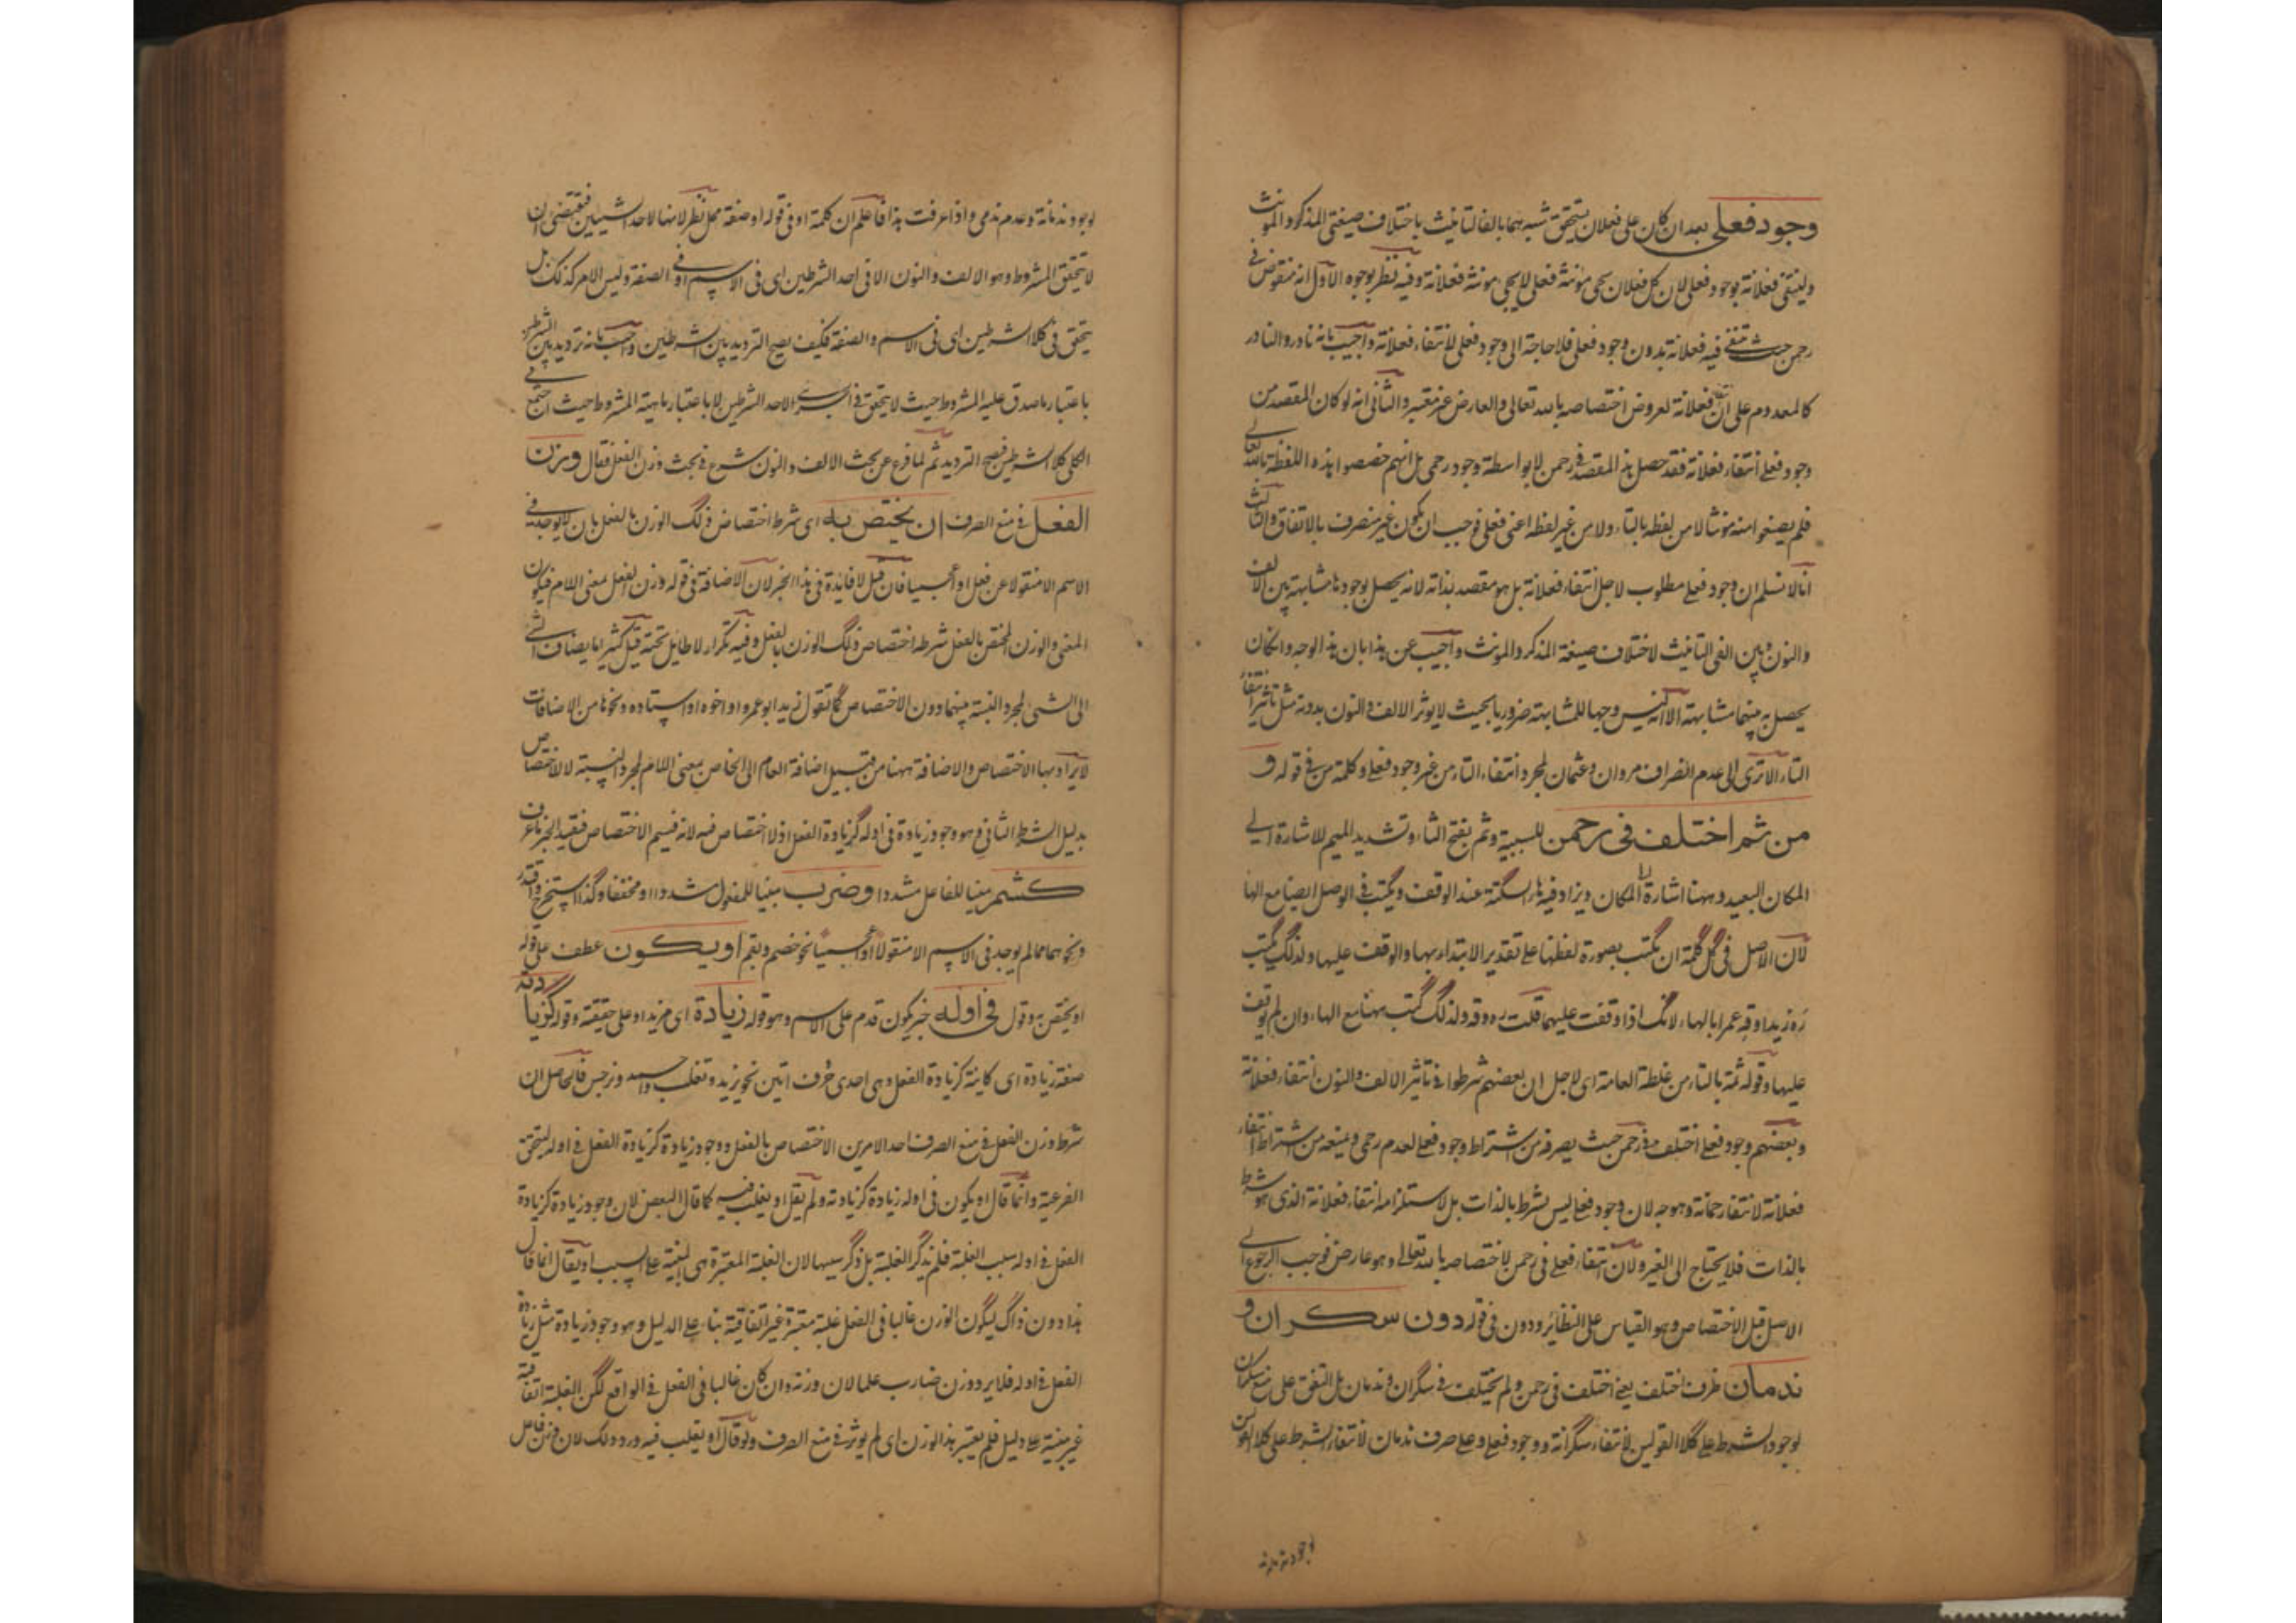 وجود فعلى بعد ان كان على فعلان يتحقق شبههما بالفا التانيث باختلاف صيغتى المذكر والمونث
ولينتفى فعلانة بوجود فعلى لان كل فعلان يجى مونثه فعلى لا يجى مونثه فعلانة وفيه نظر بوجوه الاول انه منقوض فى
رحمن حيث ينتفى فيه فعلانة بدون وجود فعلى فلا حاجة الى وجود فعلى لانتفاء فعلانة واجيب بانه نادر والنادر
كالمعدوم على ان فعلانة لعروض اختصاصه بالله تعالى والعارض غير معتبر والثانى انه لو كان المقصد من
وجود فعلى انتفاء فعلانة فقد حصل هذا المقصد فى رحمن لا بواسطة وجود رحمى بل انهم خصصوا هذه اللفظة بالله تعالى
فلم يضعوا منه مونثا لا من لفظه بالتاء ولا من غير لفظه اعنى فعلى فوجب ان يكون غير منصرف بالاتفاق والثالث
انا لا نسلم ان وجود فعلى مطلوب لاجل انتفاء فعلانة بل هو مقصد بذاته لانه يحصل بوجودها مشابهة بين الالف
والنون وبين الفى التانيث لاختلاف صيغة المذكر والمونث واجيب عن هذا بان هذا الوجه وان كان
يحصل به بينهما مشابهة الا انه ليس وجها للمشابهة ضروريا بحيث لا يوثر الالف والنون بدونه مثل تاثير انتفاء
التاء الا ترى الى عدم انصراف مروان وعثمان لمجرد انتفاء التاء من غير وجود فعلى وكلمة من فى قوله و
من ثم اختلف فى رحمن للسببية وثم بفتح الثاء وتشديد الميم للاشارة الى
المكان البعيد وههنا اشارة الى المكان ويزاد فيه هاء السكتة عند الوقف ويكتب فى الوصل ايضا مع الهاء
لان الاصل فى كل كلمة ان يكتب بصورة لفظها على تقدير الابتداء بها والوقف عليها ولذلك يكتب
ره زيدا وقه عمرا بالهاء لانك اذا وقفت عليهما قلت ره وقه ولذلك كتب ههنا مع الهاء وان لم توقف
عليها وقوله ثمة بالتاء من غلطة العامة اى لاجل ان بعضهم شرطوا فى تاثير الالف والنون انتفاء فعلانة
وبعضهم وجود فعلى اختلف فى رحمن حيث يصرفه من اشتراط وجود فعلى لعدم رحمى ويمنعه من اشتراط انتفاء
فعلانة لانتفاء رحمانة وهو وجه لان وجود فعلى ليس بشرط بالذات بل لاستلزامه انتفاء فعلانة الذى هو شرط
بالذات فلا يحتاج الى الغير ولان انتفاء فعلى فى رحمن لاختصاصه بالله تعالى وهو عارض فوجب الرجوع الى
الاصل قبل الاختصاص وهو القياس على النظائر ودون فى قوله دون سكران و
ندمان ظرف اختلف يعنى اختلف فى رحمن ولم يختلف فى سكران وندمان بل اتفق على منع سكران
لوجود الشرط على كلا القولين لانتفاء سكرانة ووجود فعلى وعلى صرف ندمان لانتفاء الشرط على كلا القولين
لوجود ندمانة
لوجود ندمانة وعدم ندمى واذا عرفت هذا فاعلم ان كلمة او فى قوله او صفة محل نظر لانها لاحد الشيئين فيقتضى ان
لا يتحقق المشروط وهو الالف والنون الا فى احد الشرطين اى فى الاسم او فى الصفة وليس الامر كذلك بل
يتحقق فى كلا الشرطين اى فى الاسم والصفة فكيف يصح الترديد بين الشرطين واجيب بانه ترديد بين الشرطين
باعتبار ما صدق عليه المشروط حيث لا يتحقق فى الاحد الشرطين لا باعتبار ماهية المشروط حيث اجتمع فى
الكلى كلا الشرطين فصح الترديد ثم لما فرغ عن بحث الالف والنون شرع فى بحث وزن الفعل فقال وزن
الفعل فى منع الصرف ان يختص به اى شرط اختصاص ذلك الوزن بالفعل بان لا يوجد فى
الاسم الا منقولا عن فعل او عجميا فان قيل لا فايدة فى هذا الخبر لان الاضافة فى قوله وزن الفعل بمعنى اللام فيكون
المعنى والوزن المختص بالفعل شرطه اختصاص ذلك الوزن بالفعل وفيه تكرار لا طايل تحته قيل كثيرا ما يضاف الشى
الى الشى لمجرد النسبة بينهما دون الاختصاص كما تقول زيد ابو عمرو او اخوه او استاده ونحوها من الاضافات
لا يراد بها الاختصاص والاضافة ههنا من قبيل اضافة العام الى الخاص بمعنى اللام لمجرد النسبة لا للاختصاص
بدليل الشرط الثانى وهو وجود زيادة فى اوله كزيادة الفعل اذ لا اختصاص فيه لانه قسيم الاختصاص فيقيد الخبر ما عرف
كشمر مبنيا للفاعل مشددا وضرب مبنيا للمفعول مشددا او مخففا وكذا استخرج واقتدر
ونحوهما مما لم يوجد فى الاسم الا منقولا او عجميا نحو خضم وبقم او يكون عطف على قوله
او يختص به وقوله فى اوله خبر يكون قدم على الاسم وهو قوله زيادة اى مزيد او على حقيقته وقوله كزيادته
صفة زيادة اى كاينة كزيادة الفعل وهى احدى حروف اتين نحو يزيد وتغلب واحمد ونرجس فالحاصل ان
شرط وزن الفعل فى منع الصرف احد الامرين الاختصاص بالفعل ووجود زيادة كزيادة الفعل فى اوله ليتحقق
الفرعية وانما قال او يكون فى اوله زيادة كزيادته ولم يقل او يغلب فيه كما قال البعض لان وجود زيادة كزيادة
الفعل فى اوله سبب الغلبة فلم يذكر الغلبة بل ذكر سببها لان الغلبة المعتبرة هى المبنية على السبب او يقال انما قال
هذا دون ذاك ليكون الوزن غالبا فى الفعل غلبة معتبرة غير اتفاقية بناء على الدليل وهو وجود زيادة مثل زيادة
الفعل فى اوله فلا يرد وزن ضارب علما لان وزنه وان كان غالبا فى الفعل فى الواقع لكن الغلبة اتفاقية
غير مبنية على دليل فلم يعتبر هذا الوزن اى لم يوثر فى منع الصرف ولو قال او يغلب فيه ورد ذلك لان وزن فاعل